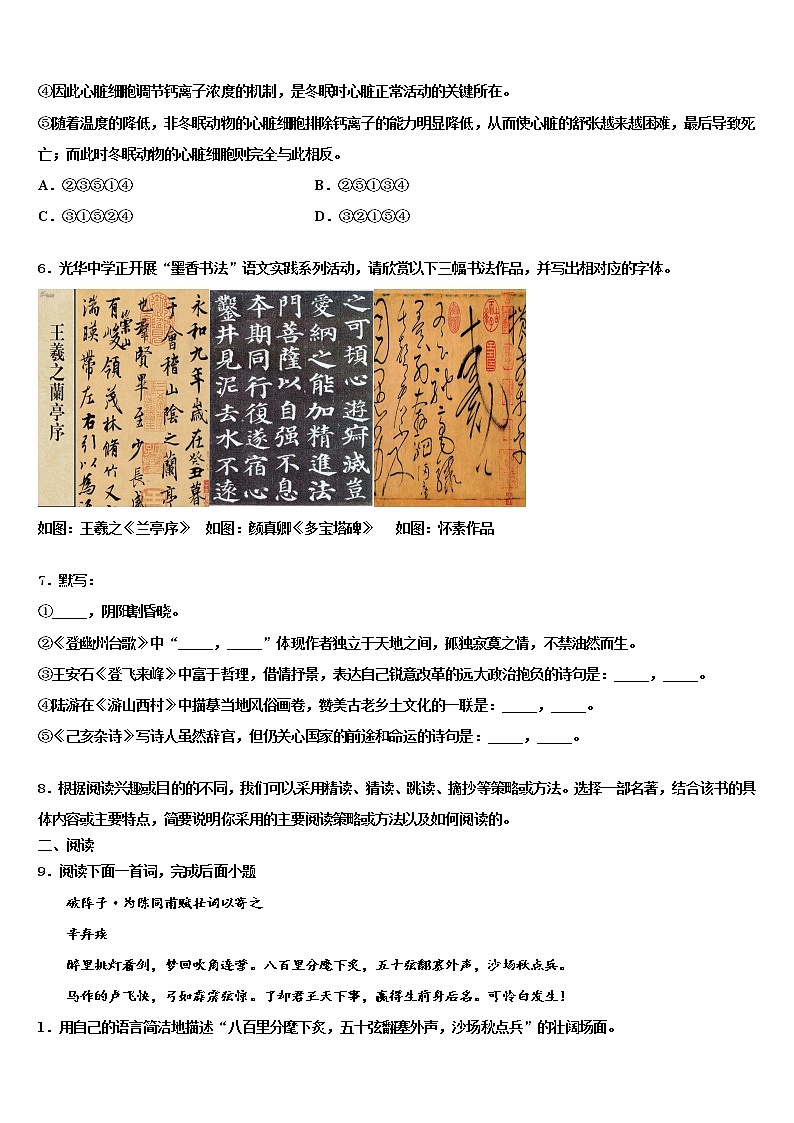 ④因此心脏细胞调节钙离子浓度的机制，是冬眠时心脏正常活动的关键所在。
⑤随着温度的降低，非冬眠动物的心脏细胞排除钙离子的能力明显降低，从而使心脏的舒张越来越困难，最后导致死
亡；而此时冬眠动物的心脏细胞则完全与此相反。
A．②③⑤①④ B．②⑤①③④
C．③①⑤②④ D．③②①⑤④
6．光华中学正开展“墨香书法”语文实践系列活动，请欣赏以下三幅书法作品，并写出相对应的字体。
王羲之蘭亭序
永和九年歲在癸丑暮
于會稽山陰之蘭亭
也羣賢畢至少長咸
有崇山峻領茂林脩竹又
湍暎帶左右引以為流
之可頓心遊寂滅豈
愛網之能加精進法
門菩薩以自强不息
本期同行復遂宿心
鑿井見泥去水不遠
如图：王羲之《兰亭序》 如图：颜真卿《多宝塔碑》 如图：怀素作品
7．默写：
①_____，阴阳割昏晓。
②《登幽州台歌》中“_____，_____”体现作者独立于天地之间，孤独寂寞之情，不禁油然而生。
③王安石《登飞来峰》中富于哲理，借情抒景，表达自己锐意改革的远大政治抱负的诗句是：_____，_____。
④陆游在《游山西村》中描摹当地风俗画卷，赞美古老乡土文化的一联是：_____，_____。
⑤《己亥杂诗》写诗人虽然辞官，但仍关心国家的前途和命运的诗句是：_____，_____。
8．根据阅读兴趣或目的的不同，我们可以采用精读、猜读、跳读、摘抄等策略或方法。选择一部名著，结合该书的具
体内容或主要特点，简要说明你采用的主要阅读策略或方法以及如何阅读的。
二、阅读
9．阅读下面一首词，完成后面小题
破阵子·为陈同甫赋壮词以寄之
辛弃疾
醉里挑灯看剑，梦回吹角连营。八百里分麾下炙，五十弦翻塞外声，沙场秋点兵。
马作的卢飞快，弓如霹雳弦惊。了却君王天下事，赢得生前身后名。可怜白发生！
1．用自己的语言简洁地描述“八百里分麾下炙，五十弦翻塞外声，沙场秋点兵”的壮阔场面。